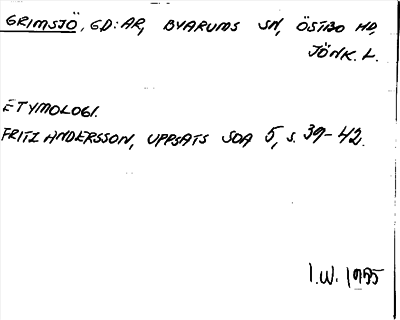 GRIMSJÖ, GD:AR, BYARUMS SN, ÖSTBO HD,
JÖNK. L.
ETYMOLOGI.
FRITZ ANDERSSON, UPPSATS SOA 5, S. 39-42.
I.W. 1955